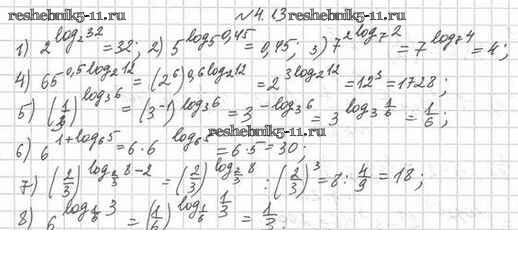 reshebnik5-11.ru
№4.13 reshebnik5-11.ru
1) 2^{log_2 32} = 32; 2) 5^{log_5 0,45} = 0,45; 3) 7^{2log_7 2} = 7^{log_7 4} = 4;
4) 65^{0,5log_2 12} = (2^6)^{0,6log_2 12} = 2^{3log_2 12} = 12^3 = 1728;
5) (1/3)^{log_3 6} = (3^{-1})^{log_3 6} = 3^{-log_3 6} = 3^{log_3 1/6} = 1/6;
reshebnik5-11.ru
6) 6^{1+log_6 5} = 6·6^{log_6 5} = 6·5 = 30;
7) (2/3)^{log_{2/3} 8-2} = (2/3)^{log_{2/3} 8} : (2/3)^3 = 8 : 4/9 = 18;
8) 6^{log_{1/6} 3} = (1/6)^{log_{1/6} 1/3} = 1/3.
reshebnik5-11.ru